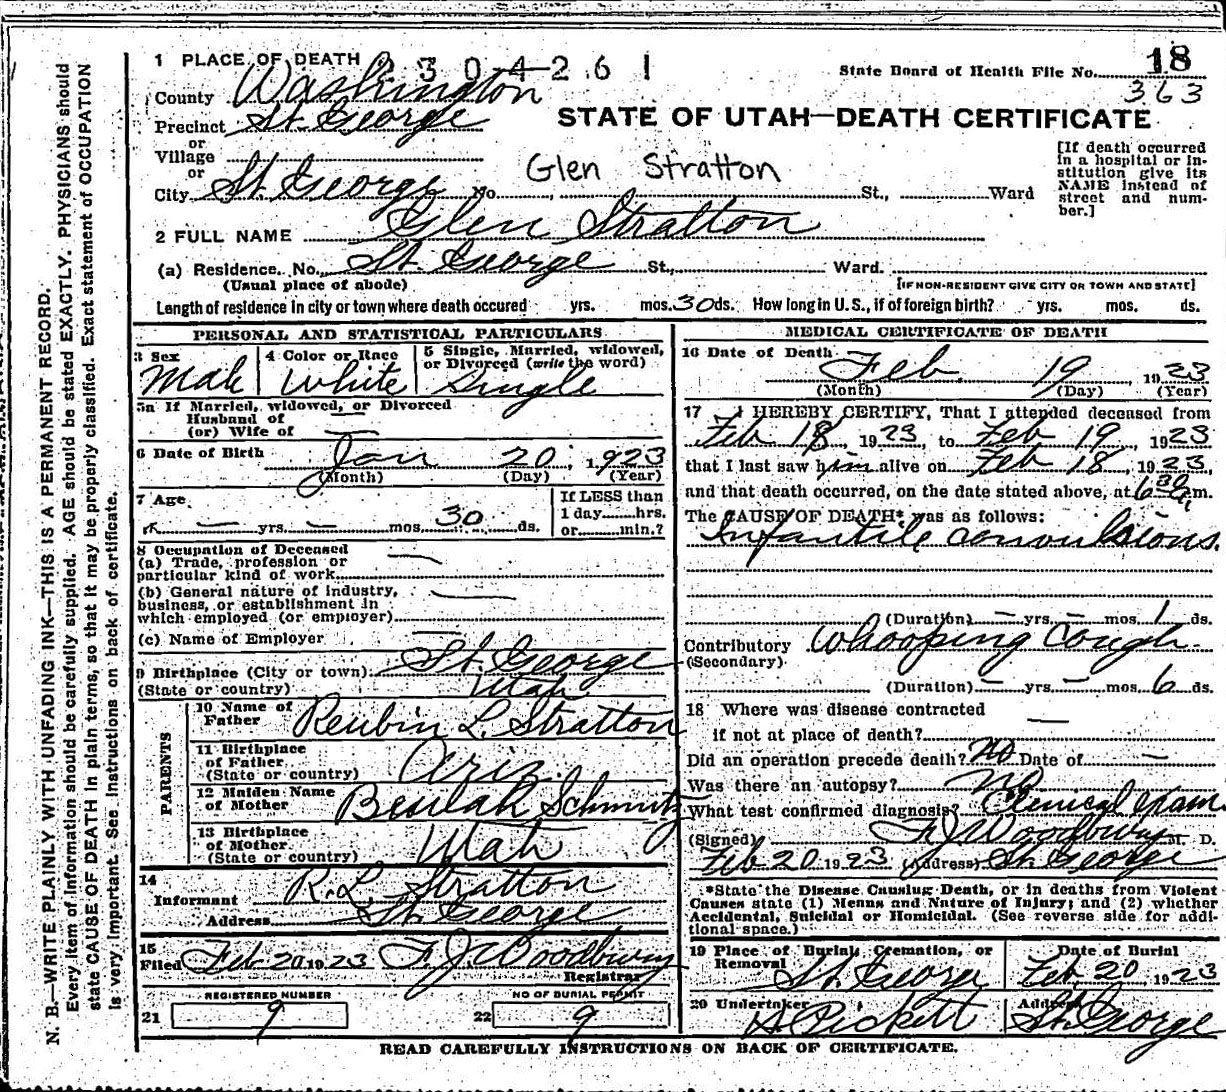 1 PLACE OF DEATH 2304261
State Board of Health File No. 18
363
County Washington
Precinct St. George
STATE OF UTAH—DEATH CERTIFICATE
or
Village
or
City St. George No. St., Ward
Glen Stratton
[If death occurred in a hospital or institution give its NAME instead of street and number.]
2 FULL NAME Glen Stratton
(a) Residence. No. St. George St., Ward.
(Usual place of abode) [IF NON-RESIDENT GIVE CITY OR TOWN AND STATE]
Length of residence in city or town where death occured yrs. mos. 30 ds. How long in U.S., if of foreign birth? yrs. mos. ds.
PERSONAL AND STATISTICAL PARTICULARS
3 Sex Male
4 Color or Race White
5 Single, Married, widowed, or Divorced (write the word) Single
5a If Married, widowed, or Divorced
Husband of
(or) Wife of —
6 Date of Birth Jan 20, 1923
(Month) (Day) (Year)
7 Age — yrs. — mos. 30 ds.
If LESS than
1 day hrs.
or min.?
8 Occupation of Deceased
(a) Trade, profession or
particular kind of work —
(b) General nature of industry,
business, or establishment in
which employed (or employer) —
(c) Name of Employer —
9 Birthplace (City or town) St. George
(State or country) Utah
PARENTS
10 Name of Father Reubin L. Stratton
11 Birthplace of Father (State or country) Ariz.
12 Maiden Name of Mother Schmutz
13 Birthplace of Mother (State or country) Utah
14
Informant R. L. Stratton
Address St. George
15
Filed Feb 20 1923 F. J. Woodbury
Registrar
REGISTERED NUMBER
21 9
NO OF BURIAL PERMIT
22 9
MEDICAL CERTIFICATE OF DEATH
16 Date of Death Feb 19, 1923
(Month) (Day) (Year)
17 I HEREBY CERTIFY, That I attended deceased from
Feb 18, 1923, to Feb 19, 1923
that I last saw him alive on Feb 18, 1923,
and that death occurred, on the date stated above, at 6 30 a.m.
The CAUSE OF DEATH* was as follows:
Infantile convulsions.
(Duration) — yrs. — mos. 1 ds.
Contributory Whooping Cough.
(Secondary)
(Duration) — yrs. — mos. 6 ds.
18 Where was disease contracted
if not at place of death? —
Did an operation precede death? No Date of —
Was there an autopsy? No
What test confirmed diagnosis? Clinical Exam
(Signed) F. J. Woodbury M. D.
Feb 20 1923 (Address) St. George
*State the Disease Causing Death, or in deaths from Violent
Causes state (1) Means and Nature of Injury; and (2) whether
Accidental, Suicidal or Homicidal. (See reverse side for additional space.)
19 Place of Burial, Cremation, or Removal St. George
Date of Burial Feb. 20 1923
20 Undertaker Pickett
Address St. George
READ CAREFULLY INSTRUCTIONS ON BACK OF CERTIFICATE.
N. B.—WRITE PLAINLY WITH UNFADING INK—THIS IS A PERMANENT RECORD.
Every item of information should be carefully supplied. AGE should be stated EXACTLY. PHYSICIANS should
state CAUSE OF DEATH in plain terms, so that it may be properly classified. Exact statement of OCCUPATION
is very important. See instructions on back of certificate.